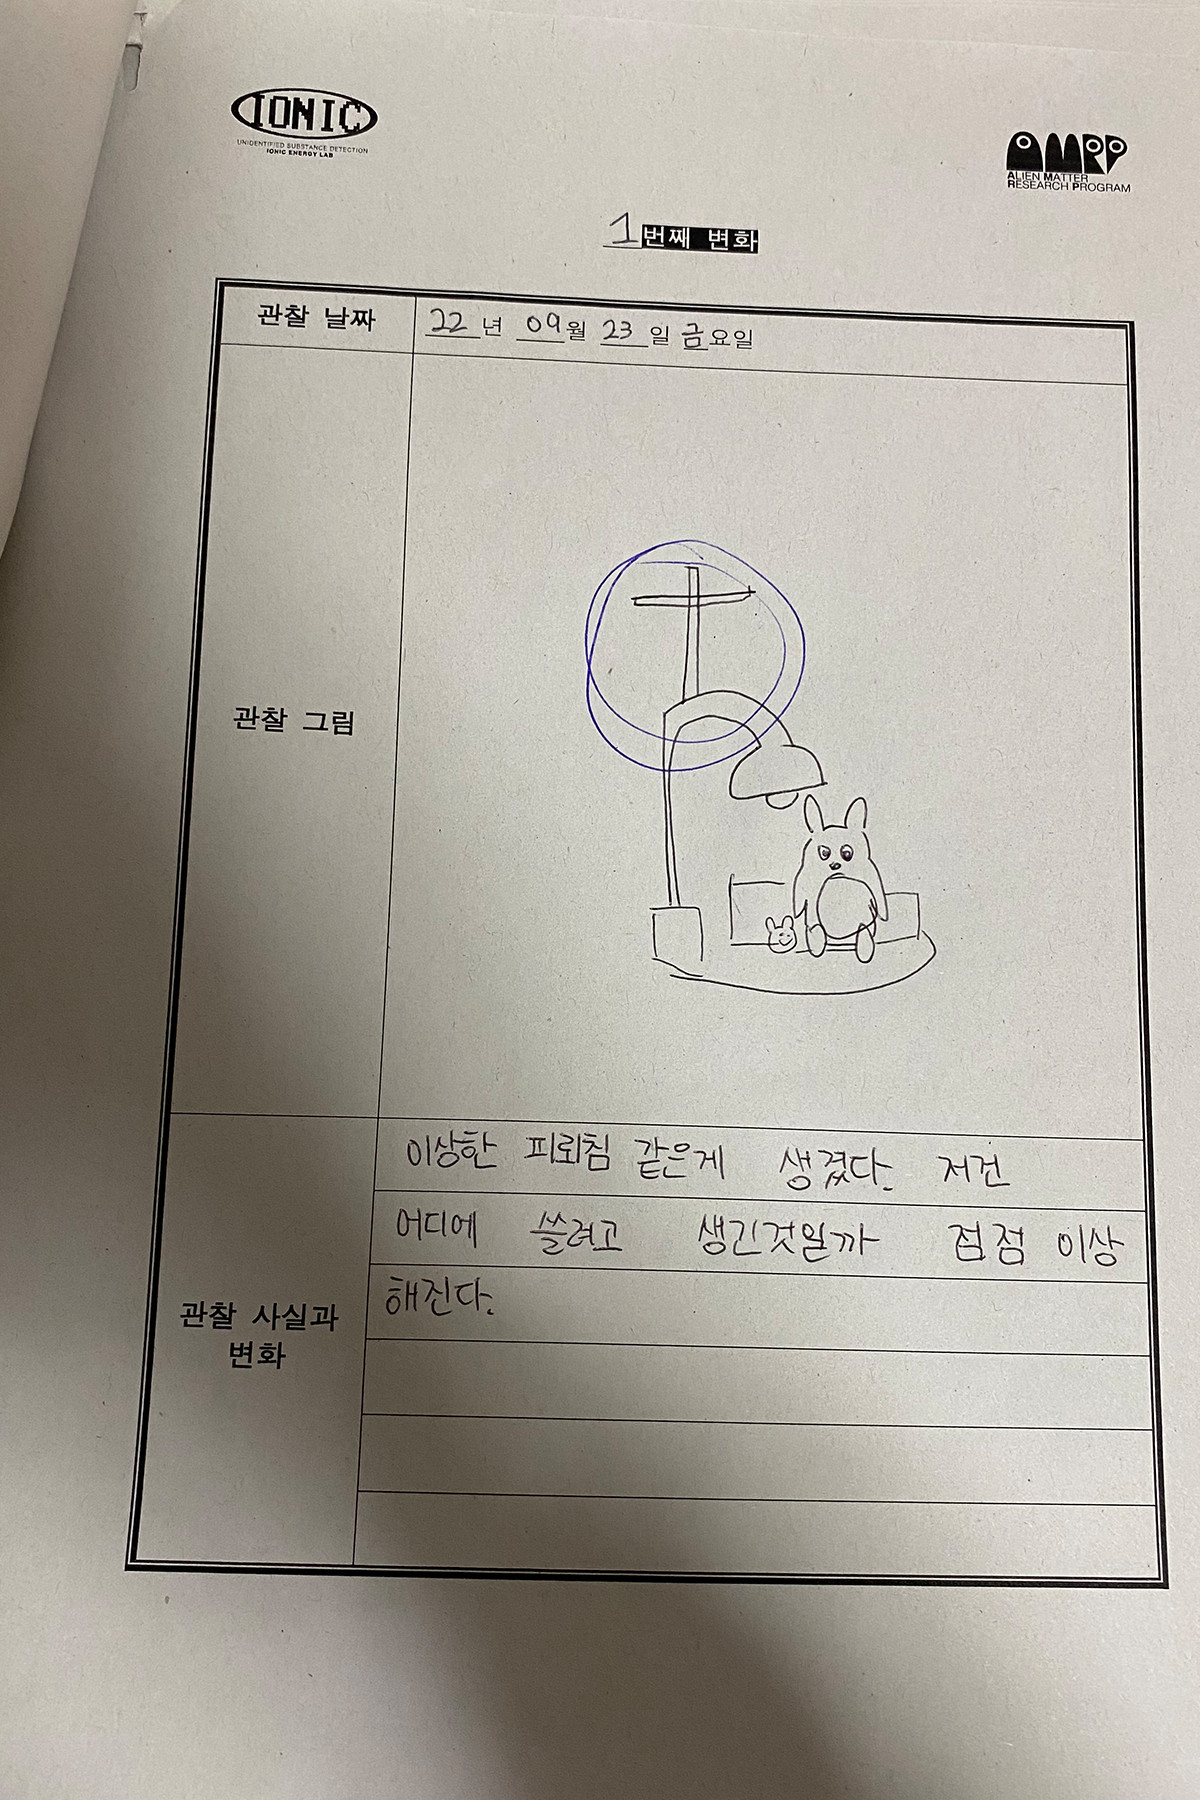 IONIC
UNIDENTIFIED SUBSTANCE DETECTION
IONIC ENERGY LAB
AMRP
ALIEN MATTER
RESEARCH PROGRAM
1번째 변화
관찰 날짜
22년 09월 23일 금요일
관찰 그림
관찰 사실과
변화
이상한 피뢰침 같은게 생겼다. 저건
어디에 쓸려고 생긴것일까 점점 이상
해진다.